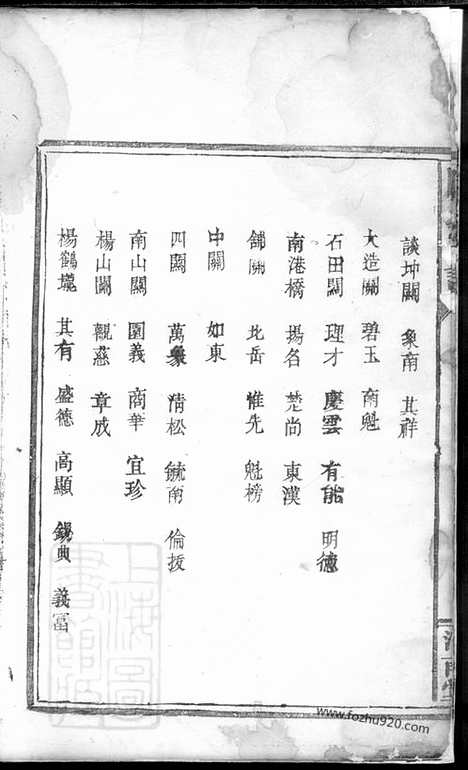 談坤關 象南 其祥
大造關 碧玉 南魁
石田關 理才 慶雲 有能 明德
南港橋 揚名 楚尚 東漢
舖關 北岳 惟先 魁榜
中關 如東
四關 萬象 清松 毓南 倫拔
南山關 園義 商華 宜珍
楊山關 觀慈 章成
楊鶴壠 其有 盛德 高顯 錫典 義富
上海圖書館藏
www.fozhu920.com